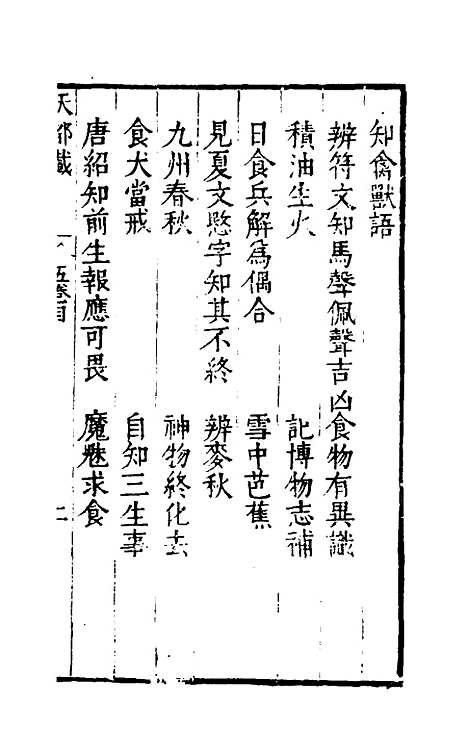 知禽獸語
辨符文知馬聲佩聲吉凶食物有異識
積油生火　記博物志補
日食兵解為偶合　雪中芭蕉
見夏文愍字知其不終　辨麥秋
九州春秋　神物終化去
食犬當戒　自知三生事
唐紹知前生報應可畏　魔魅求食
天都載　五卷目　二